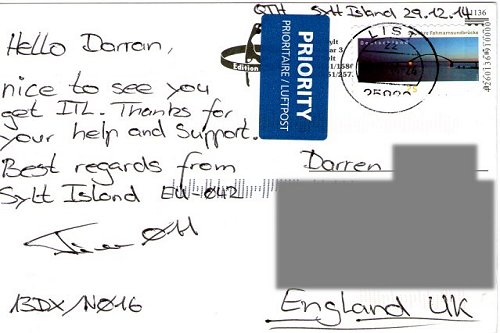 QTH Sylt Island 29.12.14
Hello Darran,
nice to see you
get ITL. Thanks for
your help and support.
Best regards from
Sylt Island EU-042
13DX/NØ16
Edition
PRIORITY
PRIORITAIRE / LUFTPOST
Deutschland
LIST
Darren
England UK